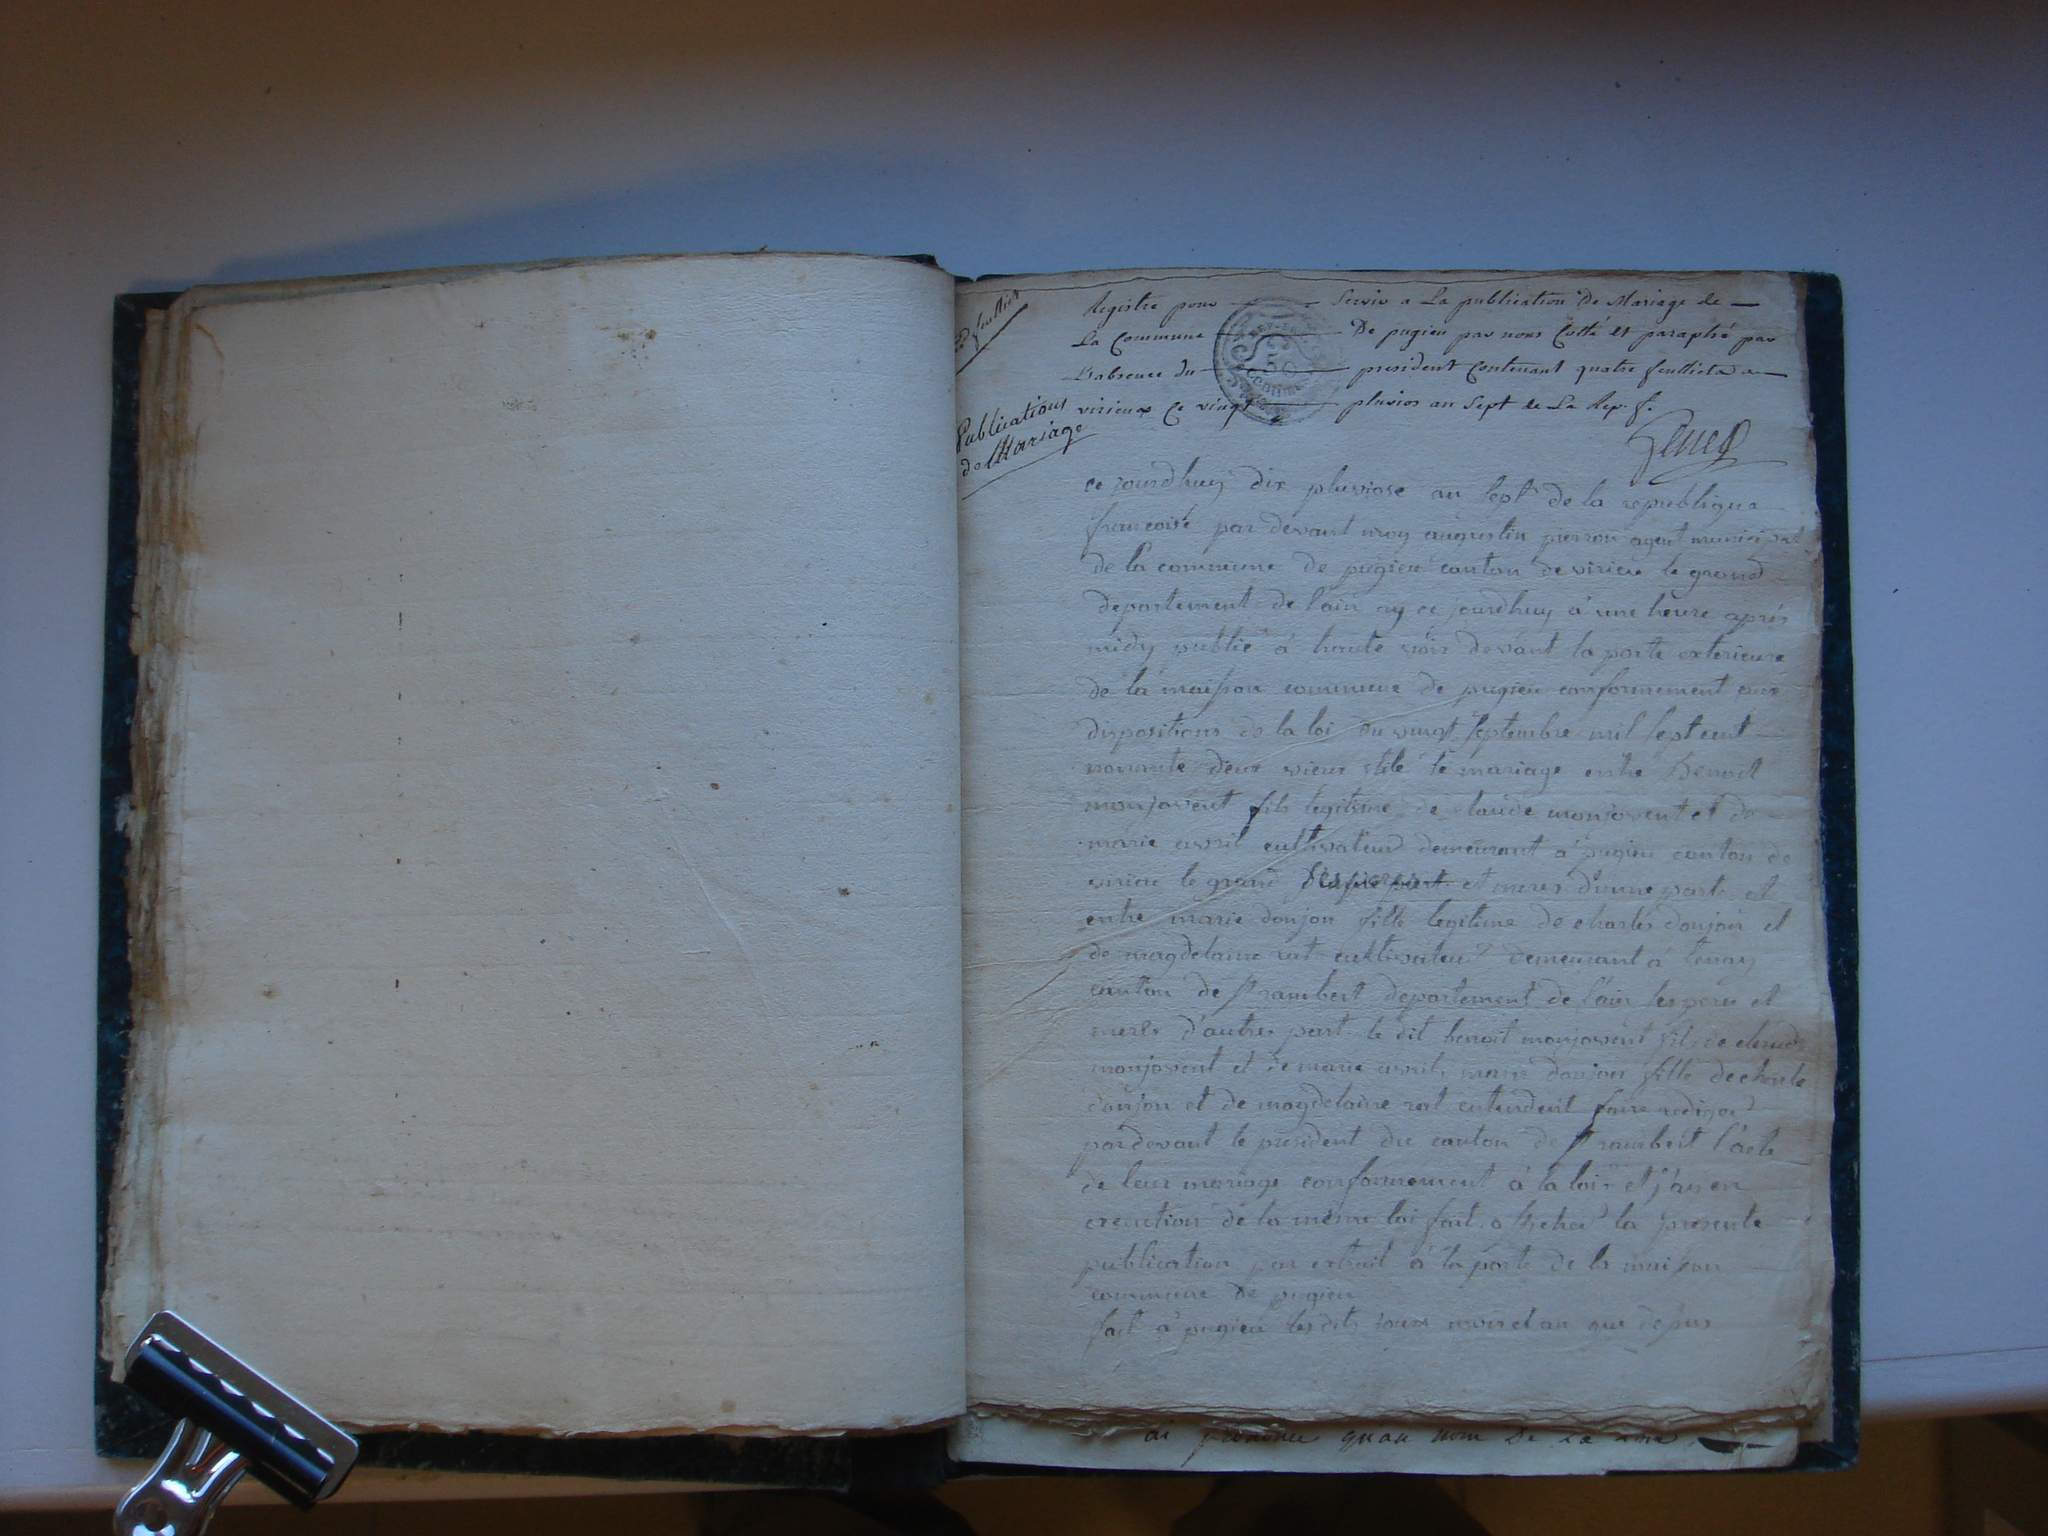 feuillet
Registre pour servir a La publication de Mariage de
La Commune De pugieu par nous Cotté et paraphé par
L'absence du president Contenant quatre feuillets a
virieux Ce vingt pluvios an Sept de La Rep. f.
Publications
de Mariage
ce jourdhuy dix pluviose an sept de la republique
francoise par devant moy augustin pierron agent municipal
de la commune de pugieu canton de virieu le grand
departement de l'ain ay ce jourdhuy a une heure aprés
midy publié à haute voix devant la porte exterieure
de la maison commune de pugieu conformement aux
dispositions de la loi du vingt septembre mil sept cent
nonante deux vieux stile le mariage entre Benoit
monjovent fils legitime de claude monjovent et de
marie avril cultivateur demeurant a pugieu canton de
virieu le grand et meres d'une part et
entre marie donjon fille legitime de charles donjon et
de magdelaine rat cultivateur demeurant à tenay
canton de st rambert departement de l'ain ses pere et
meres d'autre part le dit benoit monjovent fils de claude
monjovent et de marie avril, marie donjon fille de charle
donjon et de magdelaine rat entendent faire rediger
pardevant le president du canton de st rambert l'acte
de leur mariage conformement à la loi et j'ay en
execution de la même loi fait afficher la presente
publication par extrait à la porte de la maison
commune de pugieu
fait a pugieu les dits jours mois et an que depus
ai prononcé qu'au nom De La